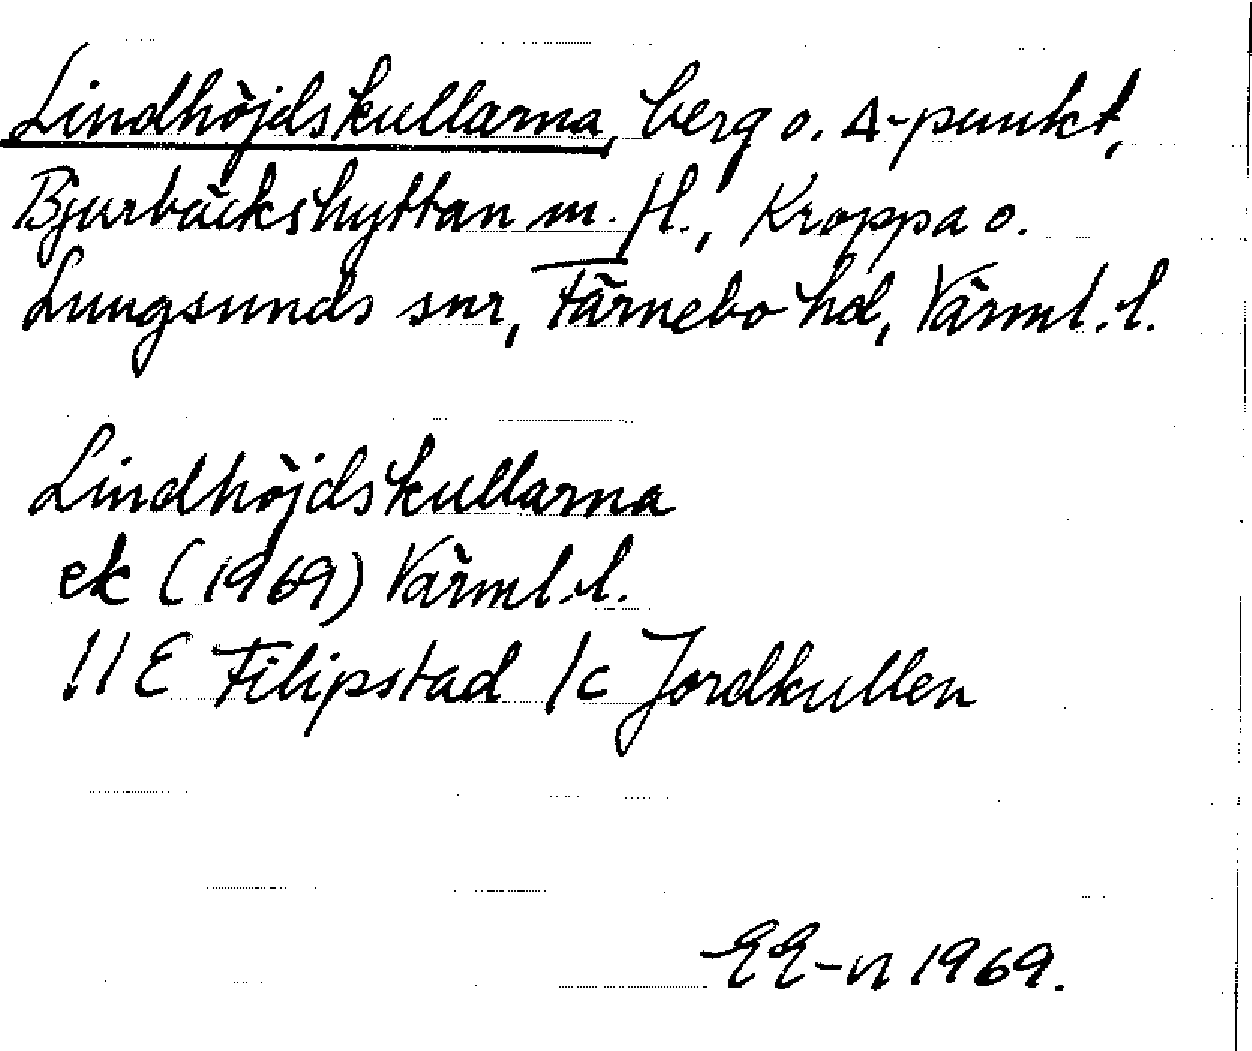 Lindhöjdskullarna, berg o. Δ-punkt,
Bjurbäckshyttan m. fl., Kroppa o.
Lungsunds snr, Färnebo hd, Värml. l.
Lindhöjdskullarna
ek (1969) Värml. l.
11 E Filipstad 1c Jordkullen
EE-n 1969.